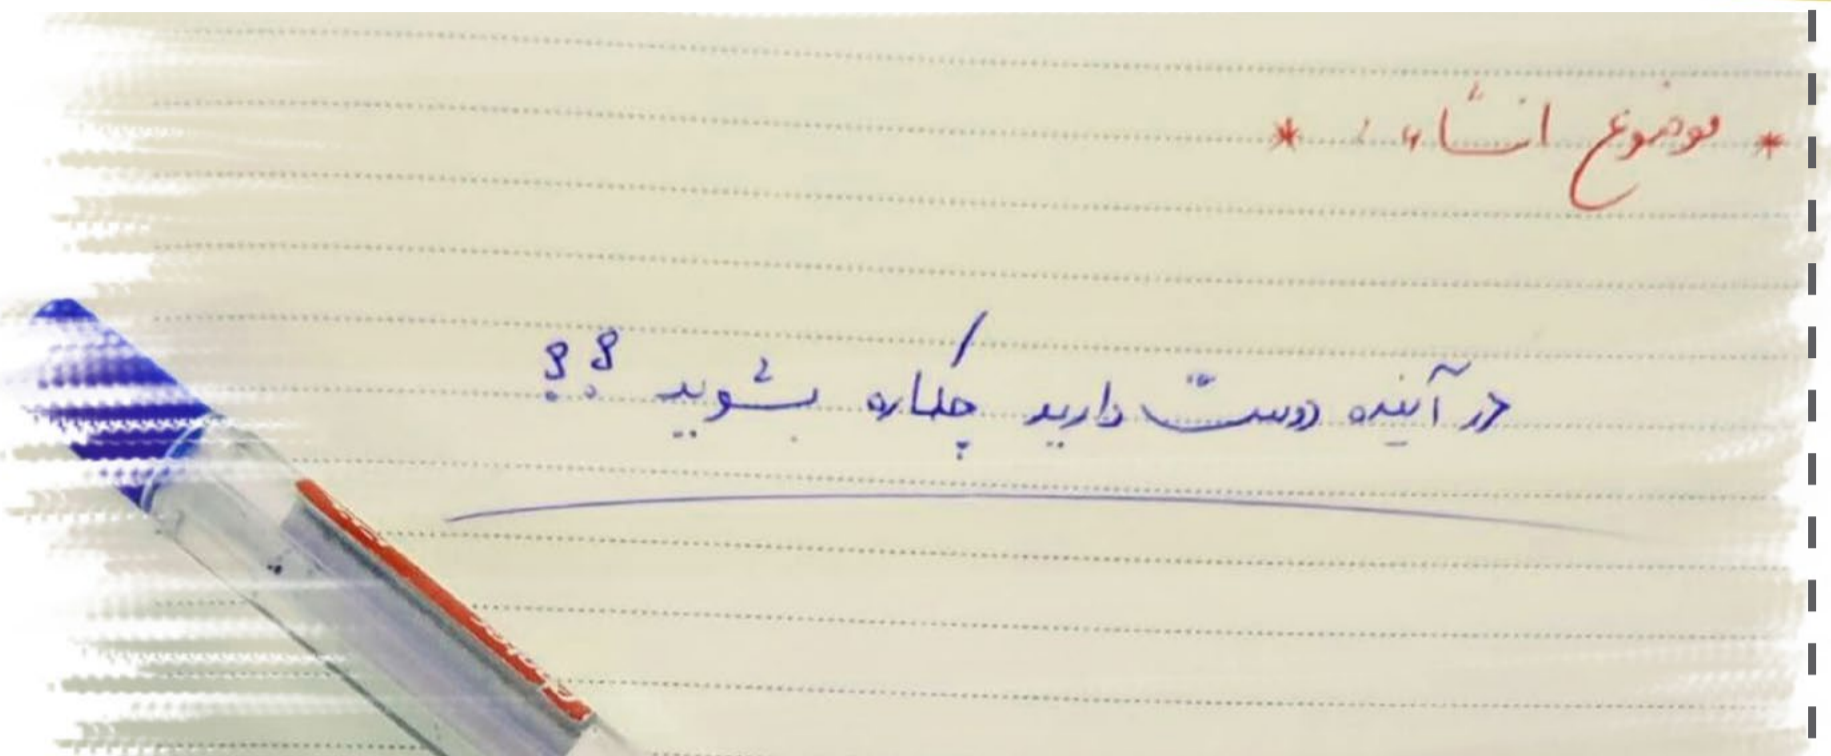 * موضوع انشاء : *
در آینده دوست دارید چکاره بشوید ؟؟